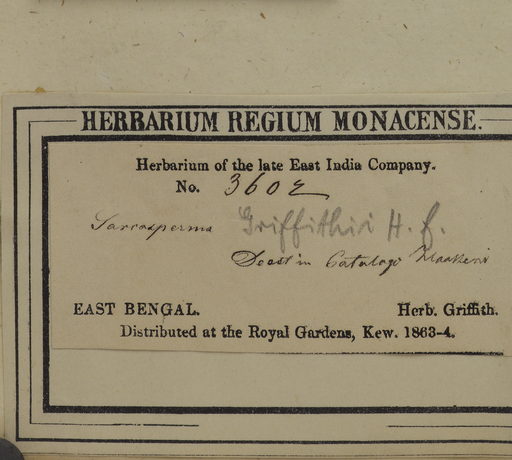 HERBARIUM REGIUM MONACENSE.
Herbarium of the late East India Company.
No. 3602
Sarcosperma Griffithii H. f.
Deest in Catalogo
EAST BENGAL. Herb. Griffith.
Distributed at the Royal Gardens, Kew. 1863-4.